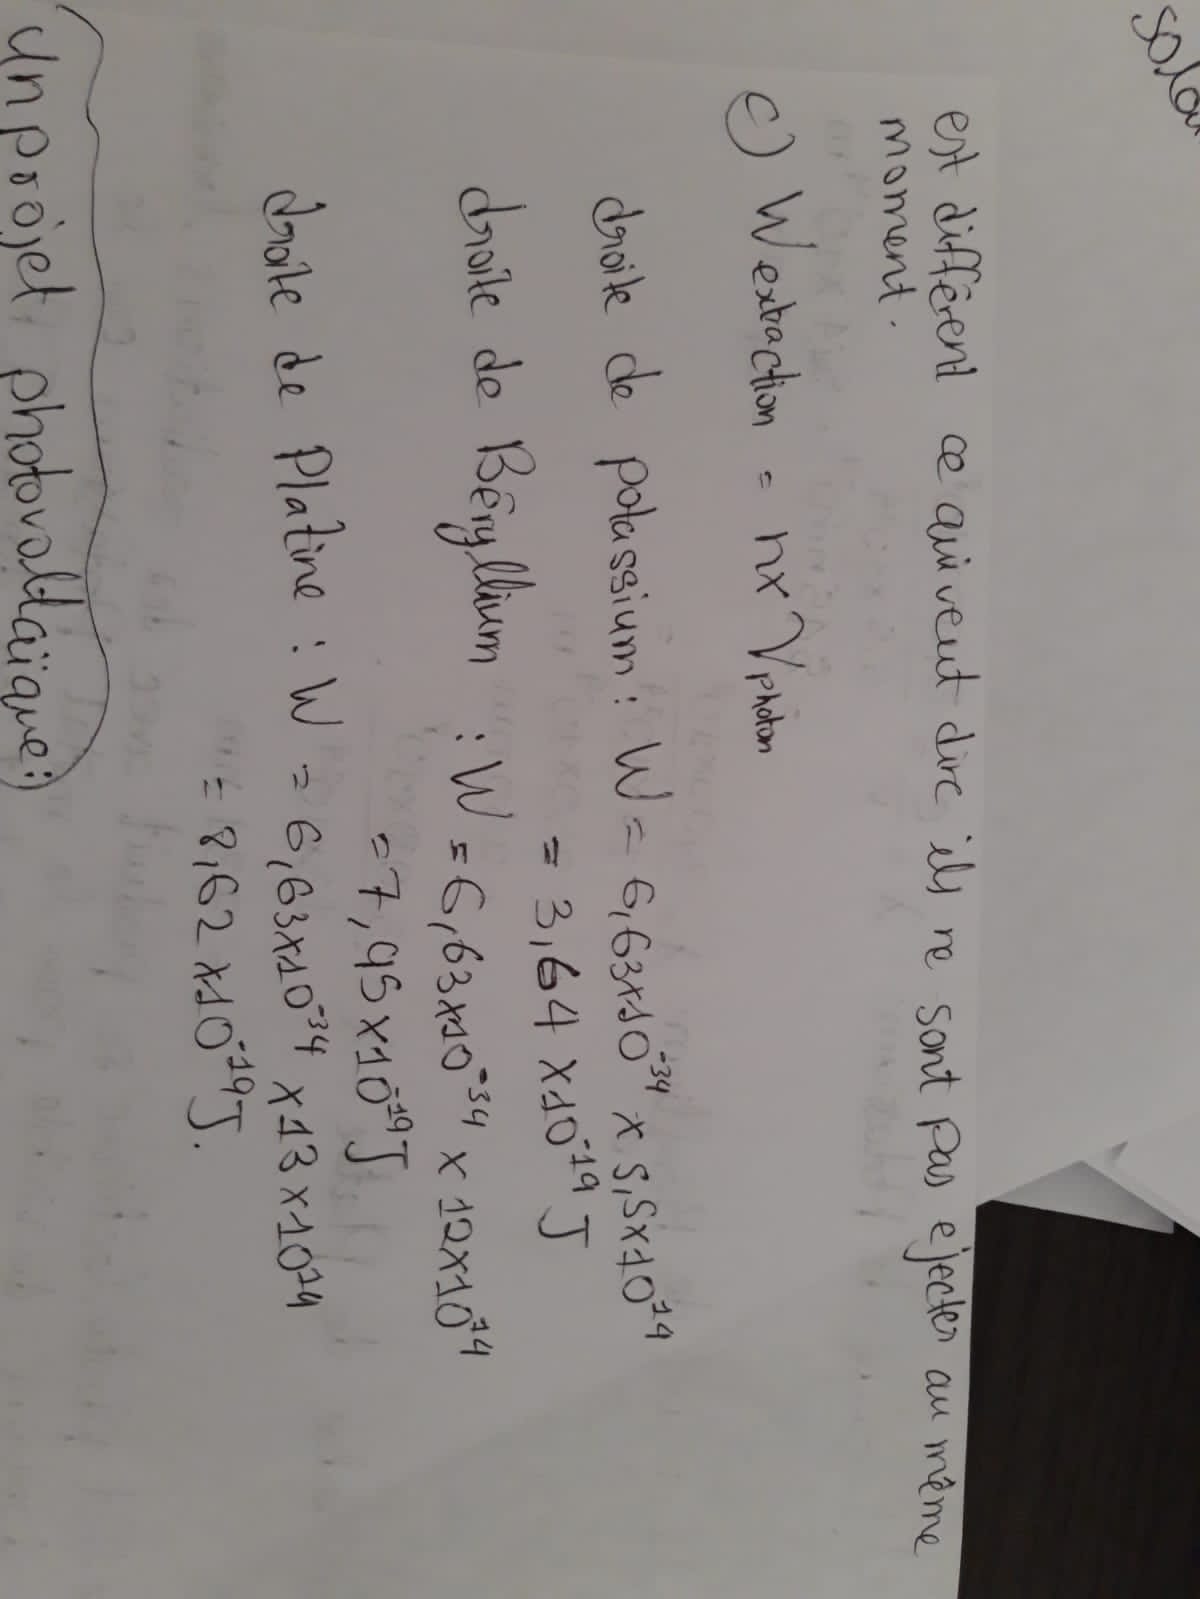 est différent ce qui veut dire ils ne sont pas ejecter au même
moment.
c) W extraction = h x ν photon
droite de potassium : W = 6,63x10⁻³⁴ x 5,5x10¹⁴
= 3,64 x10⁻¹⁹ J
droite de Béryllium : W = 6,63x10⁻³⁴ x 12x10¹⁴
= 7,95 x10⁻¹⁹ J
droite de Platine : W = 6,63x10⁻³⁴ x 13x10¹⁴
= 8,62 x10⁻¹⁹ J.
Un projet photovoltaïque :